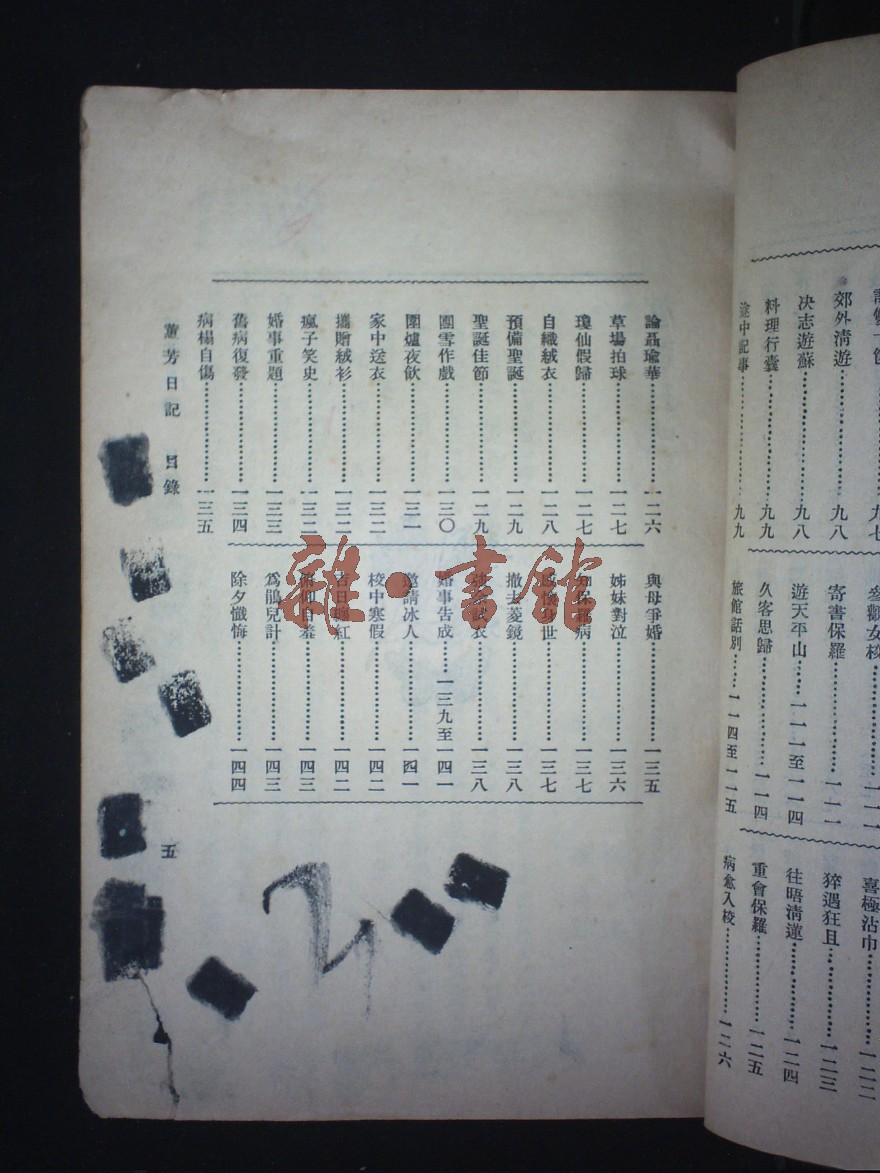 論聶瑜華……………一二六
草場拍球……………一二七
瓊仙假歸……………一二七
自織絨衣……………一二八
預備聖誕……………一二九
聖誕佳節……………一二九
團雪作戲……………一三〇
圍爐夜飲……………一三一
家中送衣……………一三二
攜贈絨衫……………一三二
瘋子笑史……………一三二
婚事重題……………一三三
舊病復發……………一三四
病榻自傷……………一三五
與母爭婚……………一三五
姊妹對泣……………一三六
知保羅病……………一三七
身世……………一三七
撤去菱鏡……………一三八
試衣……………一三八
婚事告成……一三九至一四一
邀請冰人……………一四一
校中寒假……………一四二
吉日纏紅……………一四二
俯仰自羞……………一四三
爲鵑兒計……………一四三
除夕懺悔……………一四四
芳日記 目錄
五
雜·書館
九七
郊外清遊……………九八
決志遊蘇……………九八
料理行囊……………九九
途中記事……………九九
參觀女校……………一一一
寄書保羅……………一一一
遊天平山……一一一至一一四
久客思歸……………一一四
旅館話別……一一四至一一五
喜極沾巾……………一二二
猝遇狂且……………一二三
往晤清蓮……………一二四
重會保羅……………一二五
病愈入校……………一二六